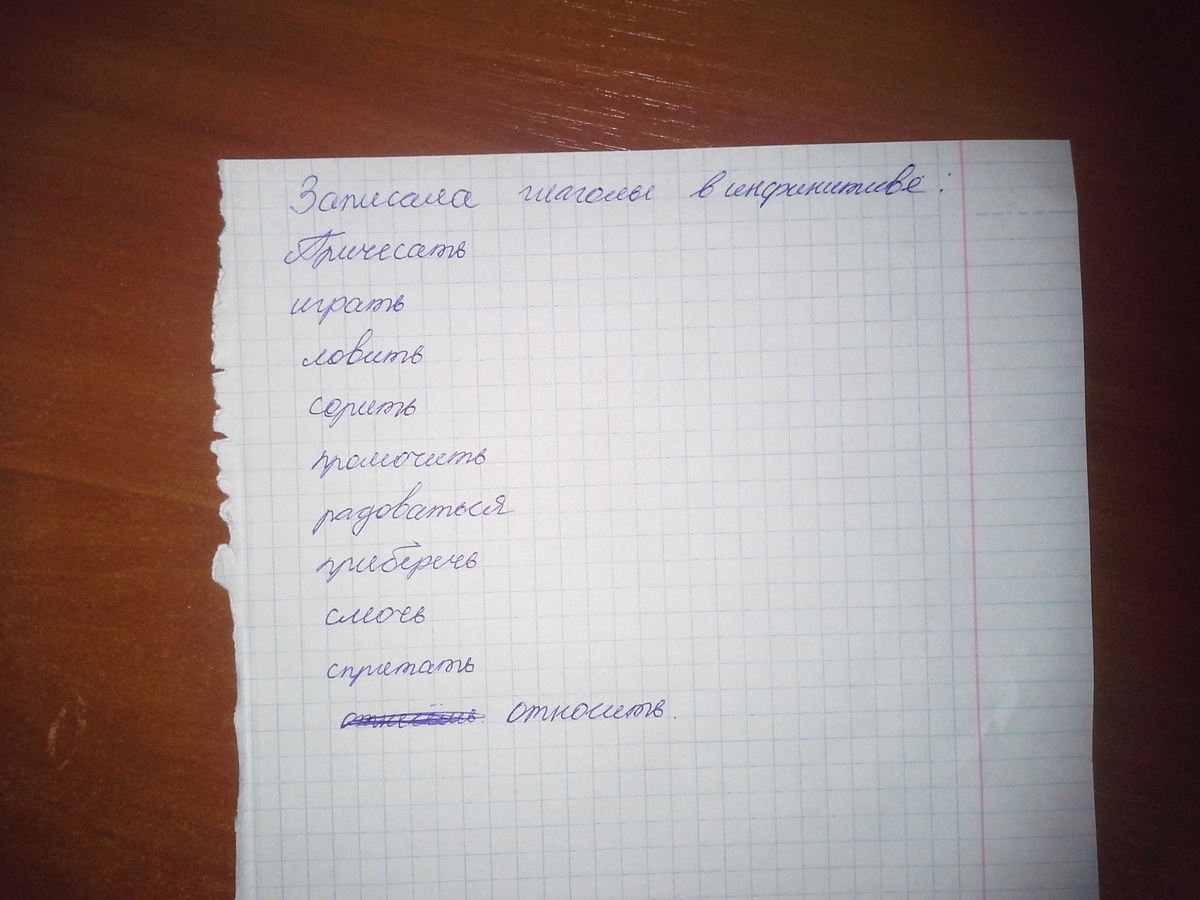 Записала глаголы в инфинитиве:
Причесать
играть
ловить
сорить
промочить
радоваться
приберечь
смочь
спретать
относить.